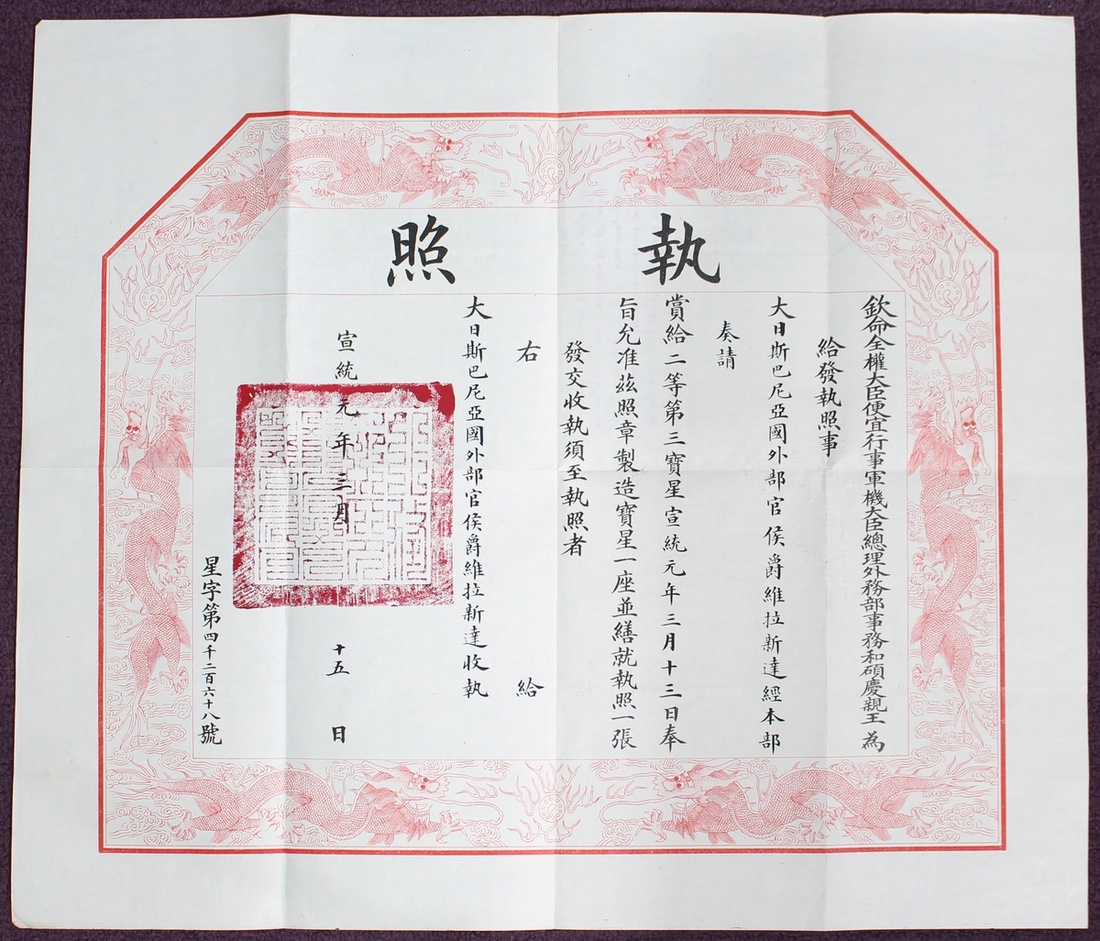 執照
欽命全權大臣便宜行事軍機大臣總理外務部事務和碩慶親王為
給發執照事
大日斯巴尼亞國外部官侯爵維拉新達經本部
奏請
賞給二等第三寶星宣統元年三月十三日奉
旨允准茲照章製造寶星一座並繕就執照一張
發交收執須至執照者
右給
大日斯巴尼亞國外部官侯爵維拉新達收執
宣統元年三月十五日
星字第四千二百六十八號